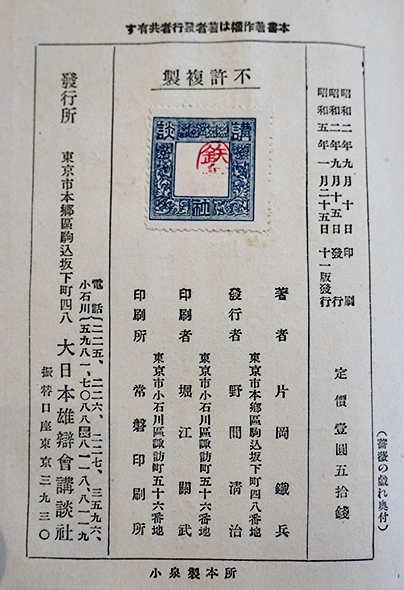 本書著作權は著者發行者共有す
昭和二年九月十日印刷
昭和二年九月十五日發行
昭和五年一月二十五日十一版發行
定價壹圓五拾錢
(薔薇の戯れ奥付)
不許複製
講談社
鉄兵
著者 片岡鐵兵
東京市本鄕區駒込坂下町四八番地
發行者 野間淸治
東京市小石川區諏訪町五十六番地
印刷者 堀江關武
東京市小石川區諏訪町五十六番地
印刷所 常磐印刷所
發行所 東京市本鄕區駒込坂下町四八 大日本雄辯會講談社
電話
小石川
二二五、二二六、二二七、三五九六、
五九八一、七〇八八、八一一八、八一一九
振替口座東京三九三〇
小泉製本所